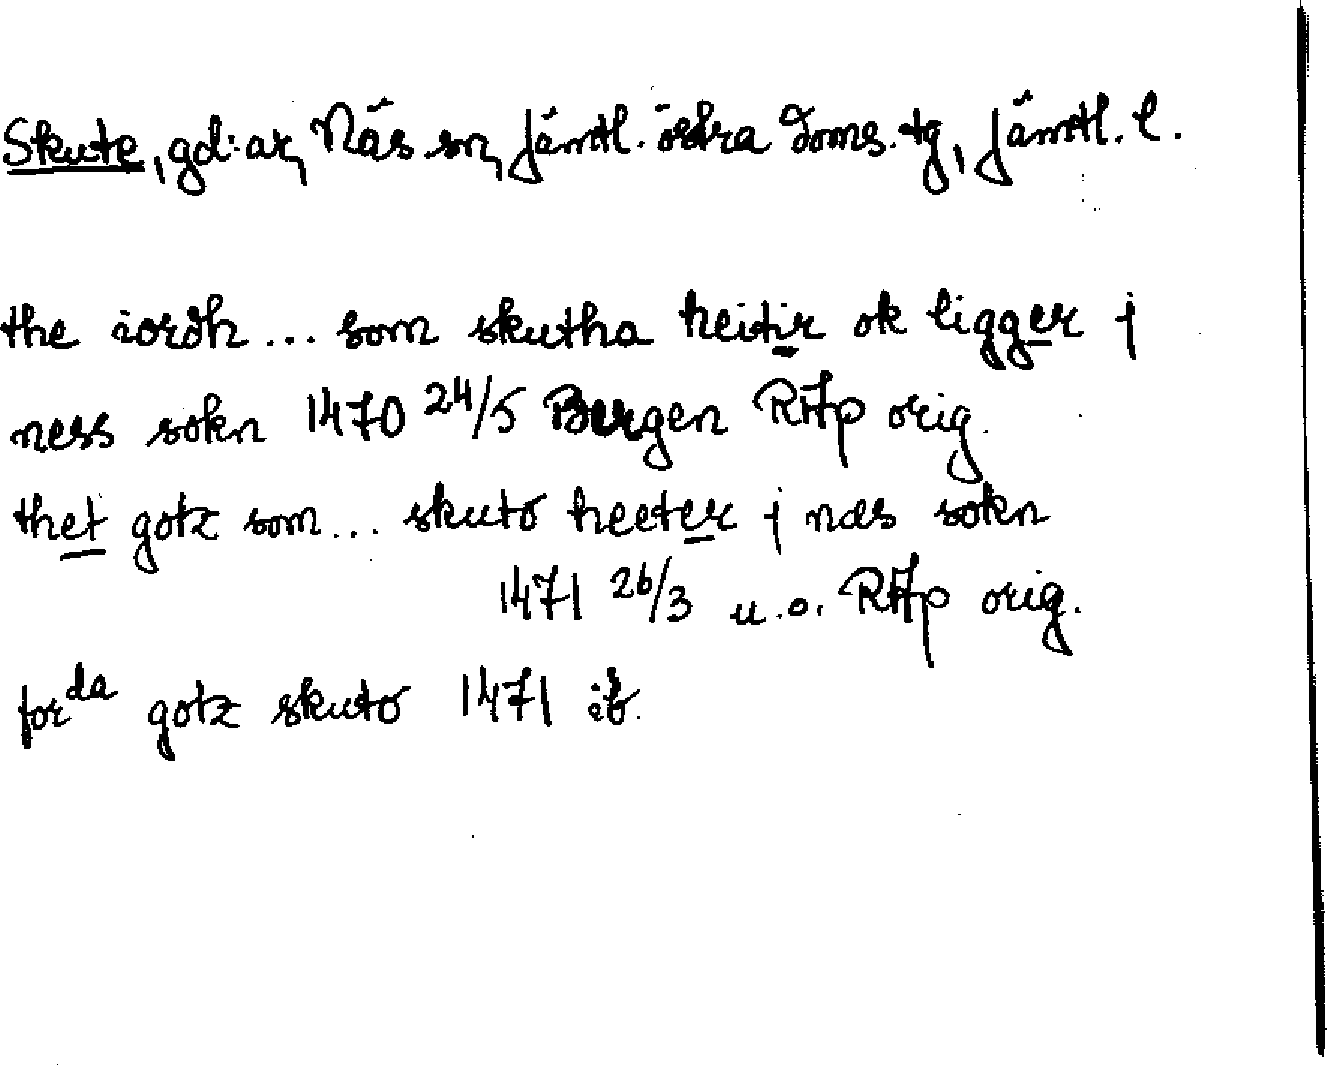 Skute, gd:ar, Näs sn, Jämtl. östra doms. tg, Jämtl. l.
the iordh ... som skutha heitir ok ligger j
ness sokn 1470 24/5 Bergen RAp orig.
thet gotz som ... skuto heeter j næs sokn
1471 26/3 u.o. RAp orig.
forda gotz skuto 1471 ib.